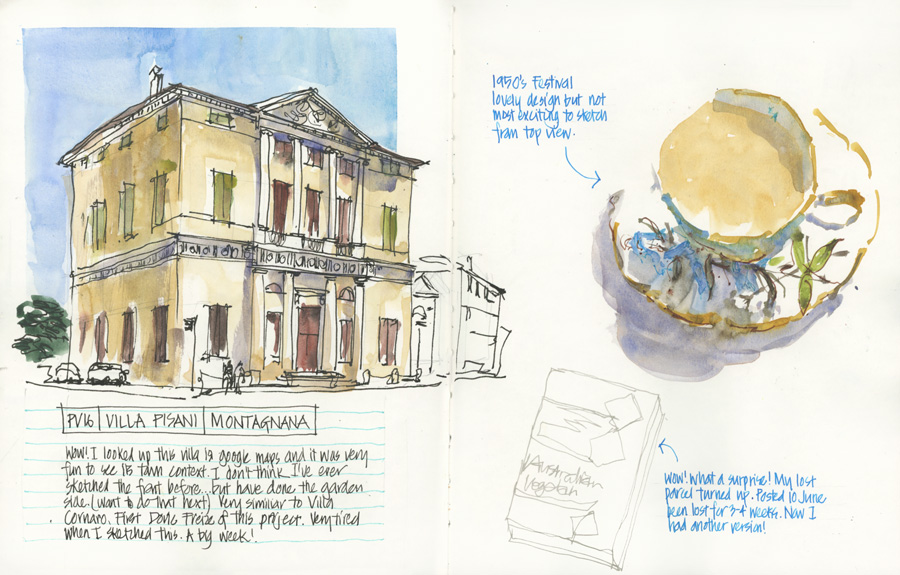 PV16 VILLA PISANI MONTAGNANA
Wow! I looked up this villa is google maps and it was very
fun to see its town context. I don't think I've ever
sketched the front before... but have done the garden
side. (want to do that next) Very similar to Villa
Cornaro. First Doric Frieze of this project. Very tired
when I sketched this. A big week!
1950's Festival
lovely design but not
most exciting to sketch
from top view.
Australian
Vegetarian
Wow! What a surprise! My lost
parcel turned up. Posted 10 June
been lost for 3-4 weeks. Now I
had another version!